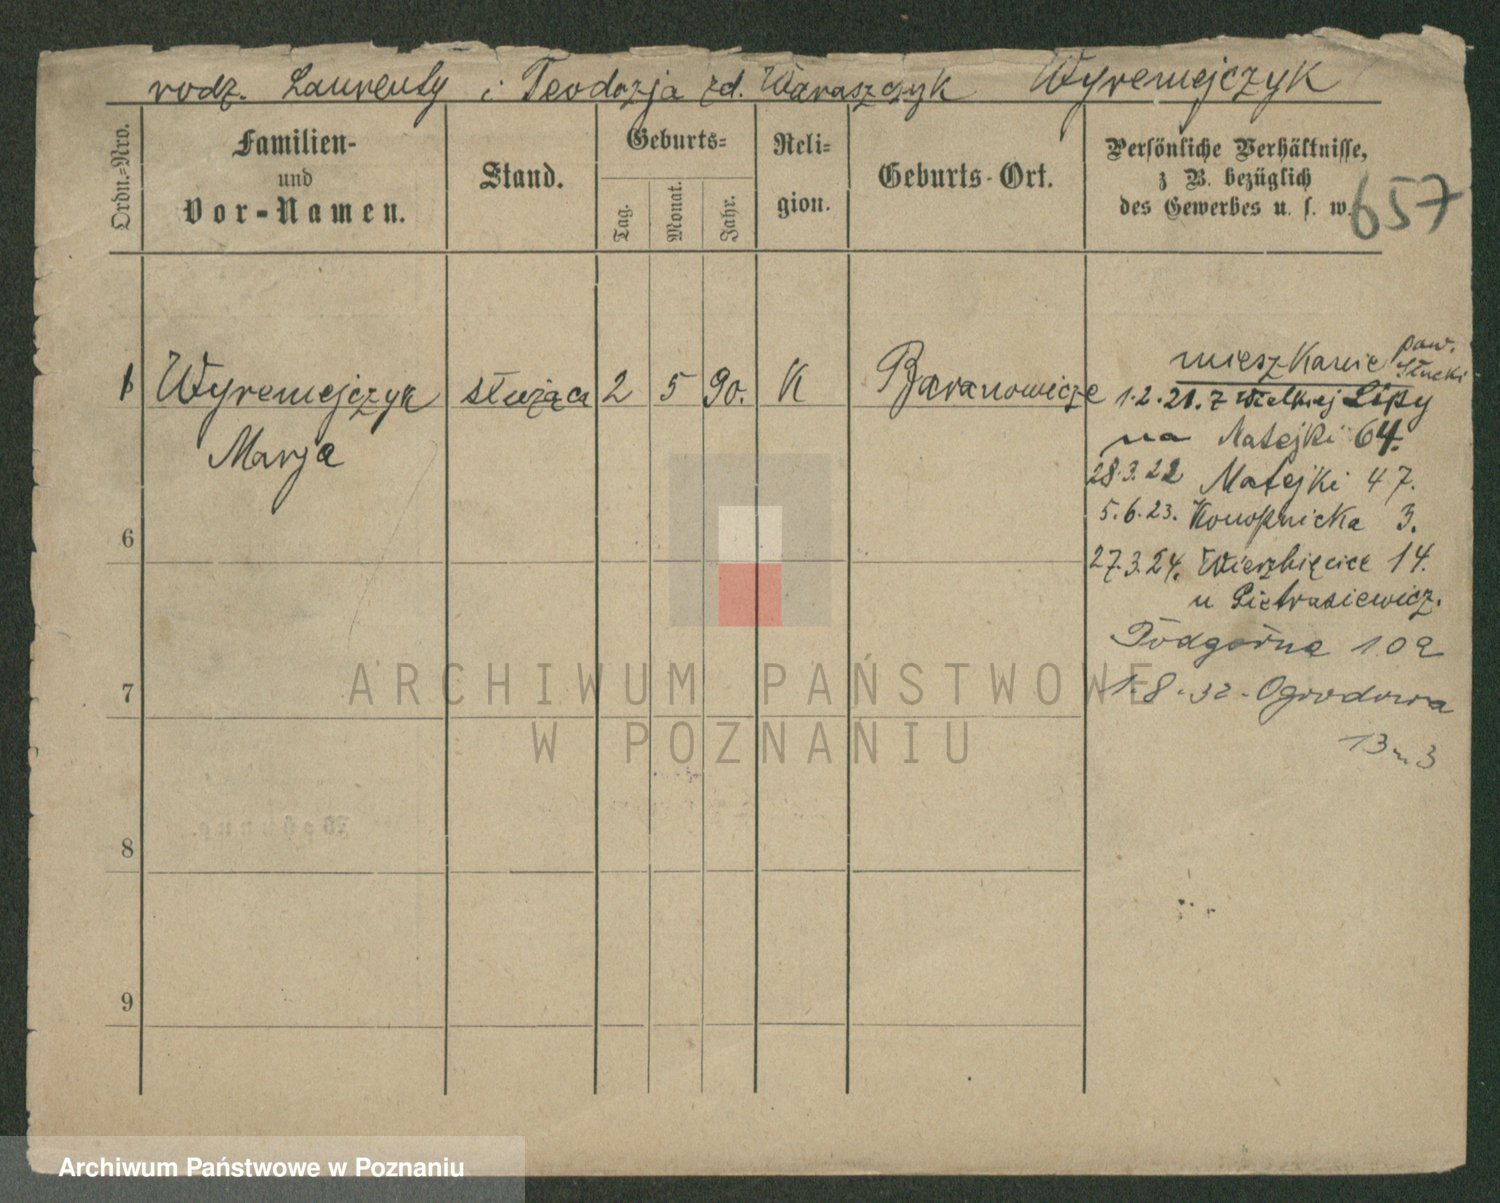 rodz. Laurenty i Teodozja zd. Waraszczyk Wyremejczyk
Ordn.-Nro.
Familien-
und
Vor-Namen.
Stand.
Geburts-
Tag.
Monat.
Jahr.
Reli-
gion.
Geburts-Ort.
Persönliche Verhältnisse,
z B. bezüglich
des Gewerbes u. s. w.
657
1 Wyremejczyk służąca 2 5 90. K Baranowicze
Marja
mieszkanie pow.
Słucki
1.2.21. z Wielkiej Lipy
na Matejki 64.
28.3.22 Matejki 47.
5.6.23. Konopnicka 3.
27.3.24. Wierzbięcice 14.
u Pietrasiewicz.
Podgórna 10a
1.8.32 - Ogrodowa
13 m 3
6
7
8
9
ARCHIWUM PAŃSTWOWE
W POZNANIU
Archiwum Państwowe w Poznaniu